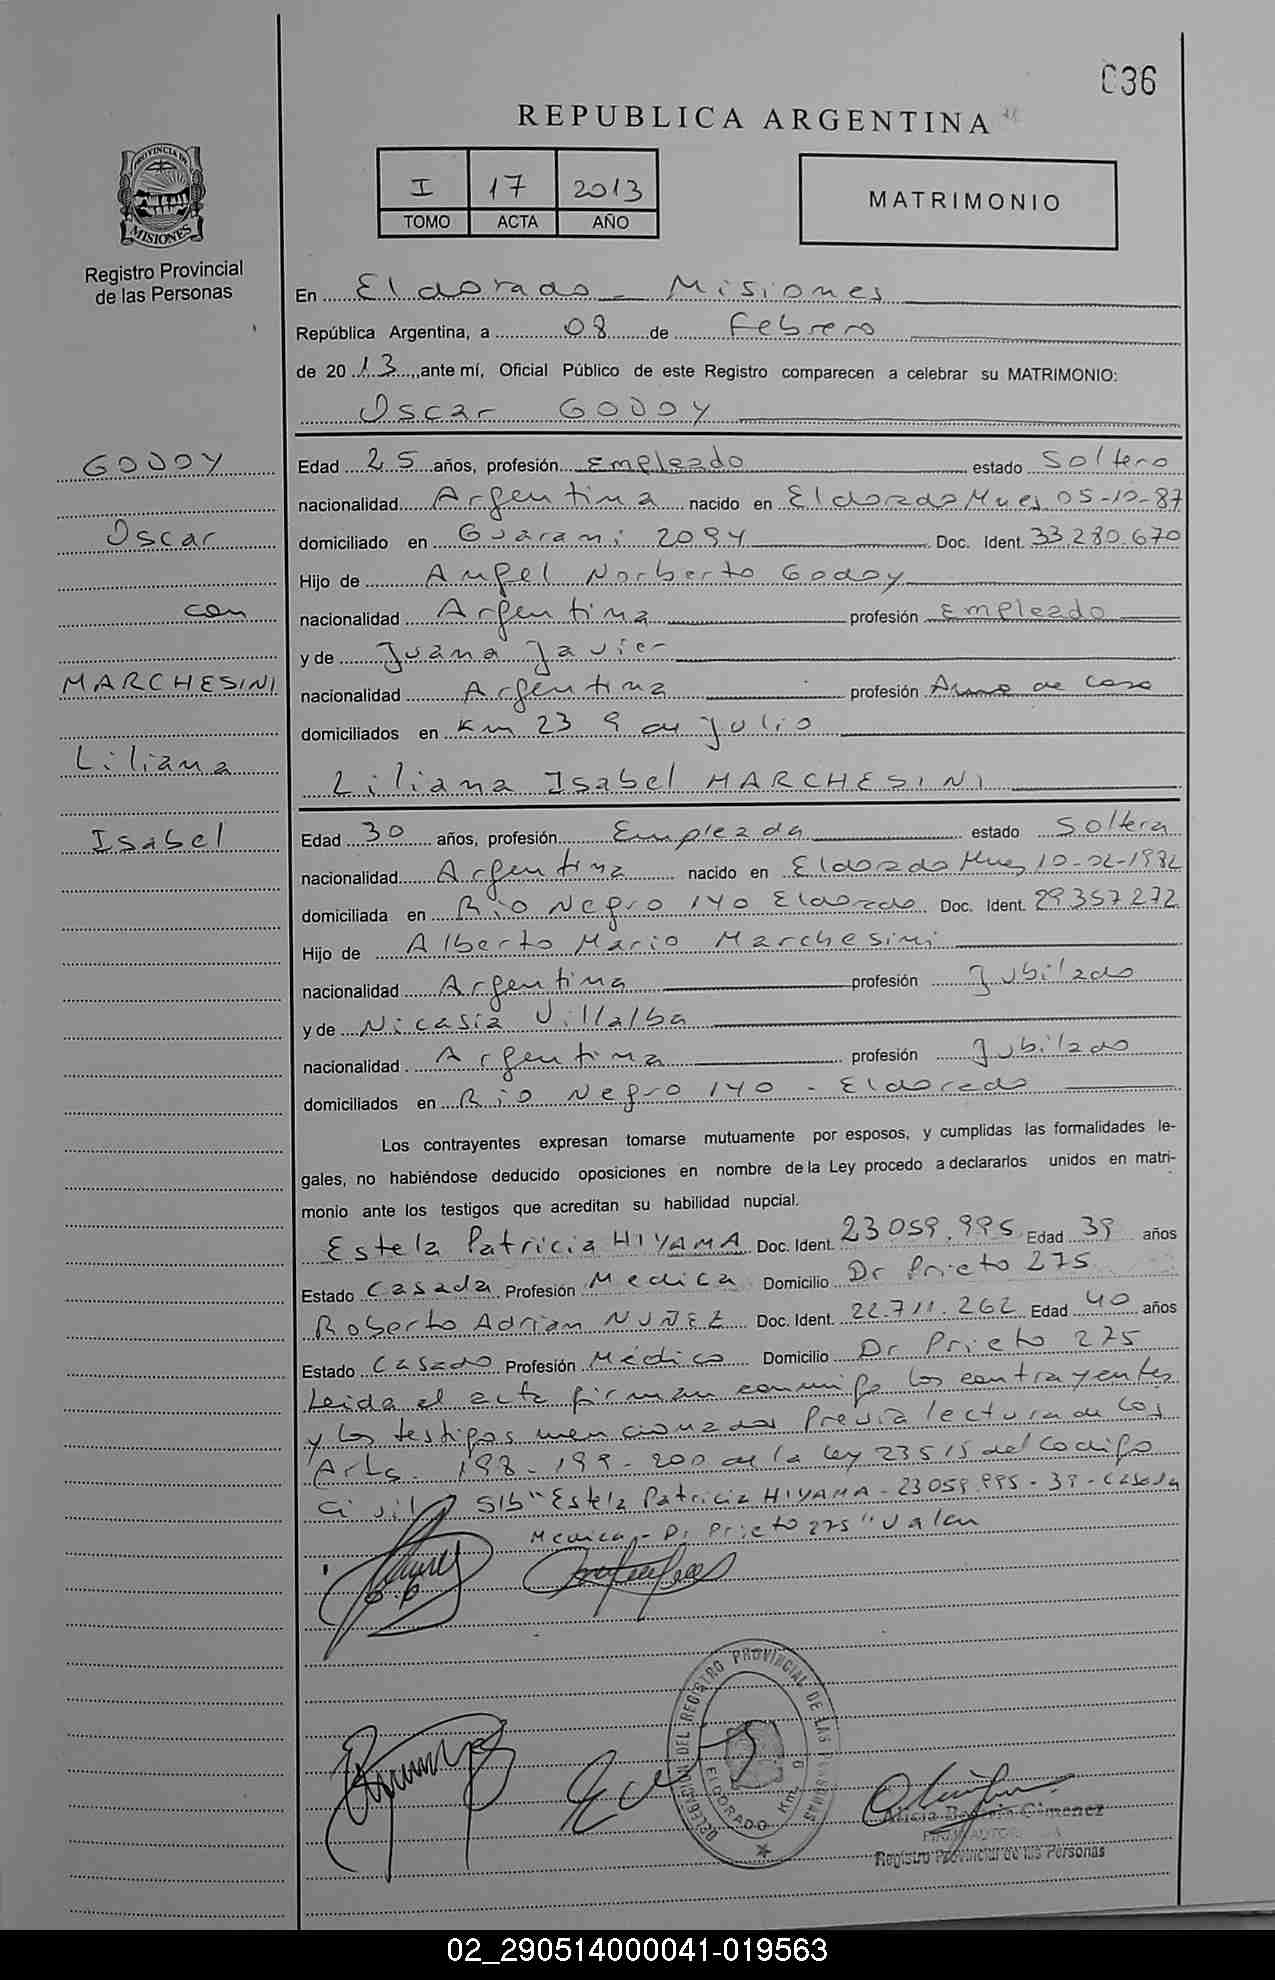 036
REPUBLICA ARGENTINA
I 17 2013
TOMO ACTA AÑO
MATRIMONIO
PROVINCIA DE
MISIONES
Registro Provincial
de las Personas
En Eldorado - Misiones
República Argentina, a 08 de Febrero
de 2013, ante mí, Oficial Público de este Registro comparecen a celebrar su MATRIMONIO:
Oscar GODOY
GODOY
Oscar
con
MARCHESINI
Liliana
Isabel
Edad 25 años, profesión Empleado estado Soltero
nacionalidad Argentina nacido en Eldorado Mnes 05-10-87
domiciliado en Guarani 2094 Doc. Ident. 33.280.670
Hijo de Angel Norberto Godoy
nacionalidad Argentina profesión Empleado
y de Juana Javier
nacionalidad Argentina profesión Ama de Casa
domiciliados en Km 23 9 de Julio
Liliana Isabel MARCHESINI
Edad 30 años, profesión Empleada estado Soltera
nacionalidad Argentina nacido en Eldorado Mnes 10-02-1982
domiciliada en Rio Negro 140 Eldorado Doc. Ident. 29.357.272
Hijo de Alberto Mario Marchesini
nacionalidad Argentina profesión Jubilado
y de Nicasia Villalba
nacionalidad Argentina profesión Jubilado
domiciliados en Rio Negro 140 - Eldorado
Los contrayentes expresan tomarse mutuamente por esposos, y cumplidas las formalidades le-
gales, no habiéndose deducido oposiciones en nombre de la Ley procedo a declararlos unidos en matri-
monio ante los testigos que acreditan su habilidad nupcial.
Estela Patricia HIYAMA Doc. Ident. 23059.995 Edad 39 años
Estado Casada Profesión Medica Domicilio Dr Prieto 275
Roberto Adrian NUÑEZ Doc. Ident. 22.711.262 Edad 40 años
Estado Casado Profesión Médico Domicilio Dr Prieto 275
Leida el acta firman conmigo los contrayentes
y los testigos mencionados Previa lectura de los
Arts. 198-199-200 de la ley 23515 del Codigo
Civil S/b "Estela Patricia HIYAMA - 23059.995 - 39 - Casada
Medica - Dr Prieto 275" Valen
DELEGACION DEL REGISTRO PROVINCIAL DE LAS PERSONAS
ELDORADO Km.
Alicia Gimenez
Registro Provincial de las Personas
02_290514000041-019563